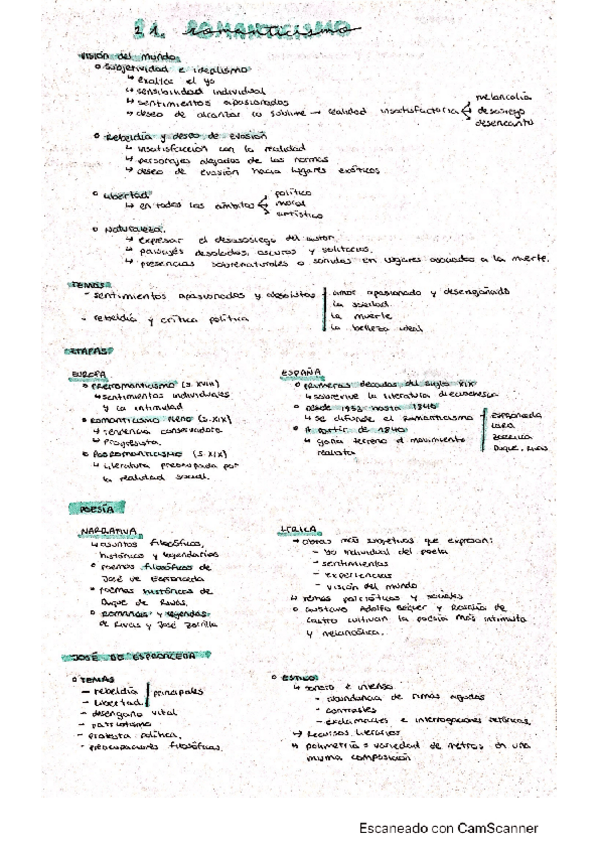 21. Romanticismo
Visión del mundo
Subjetividad e idealismo
↳ exaltar el yo
↳ sensibilidad individual
↳ sentimientos apasionados
↳ deseo de alcanzar lo sublime → realidad insatisfactoria
melancolía
desasosiego
desencanto
Rebeldía y deseo de evasión
↳ insatisfacción con la realidad
↳ personajes alejados de las normas
↳ deseo de evasión hacia lugares exóticos
Libertad
↳ en todos los ámbitos
político
moral
artístico
Naturaleza.
↳ expresar el desasosiego del autor.
↳ paisajes desolados, oscuros y solitarios.
↳ presencias sobrenaturales o sonidos en lugares asociados a la muerte.
TEMAS
- sentimientos apasionados y absolutos
amor apasionado y desengañado
la soledad.
la muerte
la belleza ideal
- rebeldía y crítica política
ETAPAS
EUROPA
Prerromanticismo (s. XVIII)
↳ sentimientos individuales
y la intimidad
Romanticismo pleno (s. XIX)
↳ tendencia conservadora
↳ Progresista.
Posromanticismo (s. XIX)
↳ Literatura preocupada por
la realidad social.
ESPAÑA
Primeras décadas del siglo XIX
↳ sobrevive la literatura dieciochesca
Desde 1933 hasta 1840
↳ se difunde el romanticismo
Espronceda
Larra
Zorrilla
Duque. Rivas
A partir de 1840
↳ gana terreno el movimiento
realista
POESÍA
NARRATIVA
↳ asuntos filosóficos,
históricos y legendarios
poemas filosóficos de
José de Espronceda
poemas históricos de
Duque de Rivas.
Romances y leyendas
de Rivas y José Zorrilla
LÍRICA
↳ obras más subjetivas que expresan:
- Yo individual del poeta
- sentimientos
- experiencias
- visión del mundo
↳ temas patrióticos y sociales
Gustavo Adolfo Béquer y Rosalía de
Castro cultivan la poesía más intimista
y melancólica.
JOSÉ DE ESPRONCEDA
TEMAS
- rebeldía
- libertad
principales
- desengaño vital
- patriotismo
- protesta política.
- preocupaciones filosóficas.
ESTILO
↳ sonoro e intenso
- abundancia de rimas agudas
- contrastes
- exclamaciones e interrogaciones retóricas.
→ Recursos literarios
↳ polimetría = variedad de metros en una
misma composición
Escaneado con CamScanner